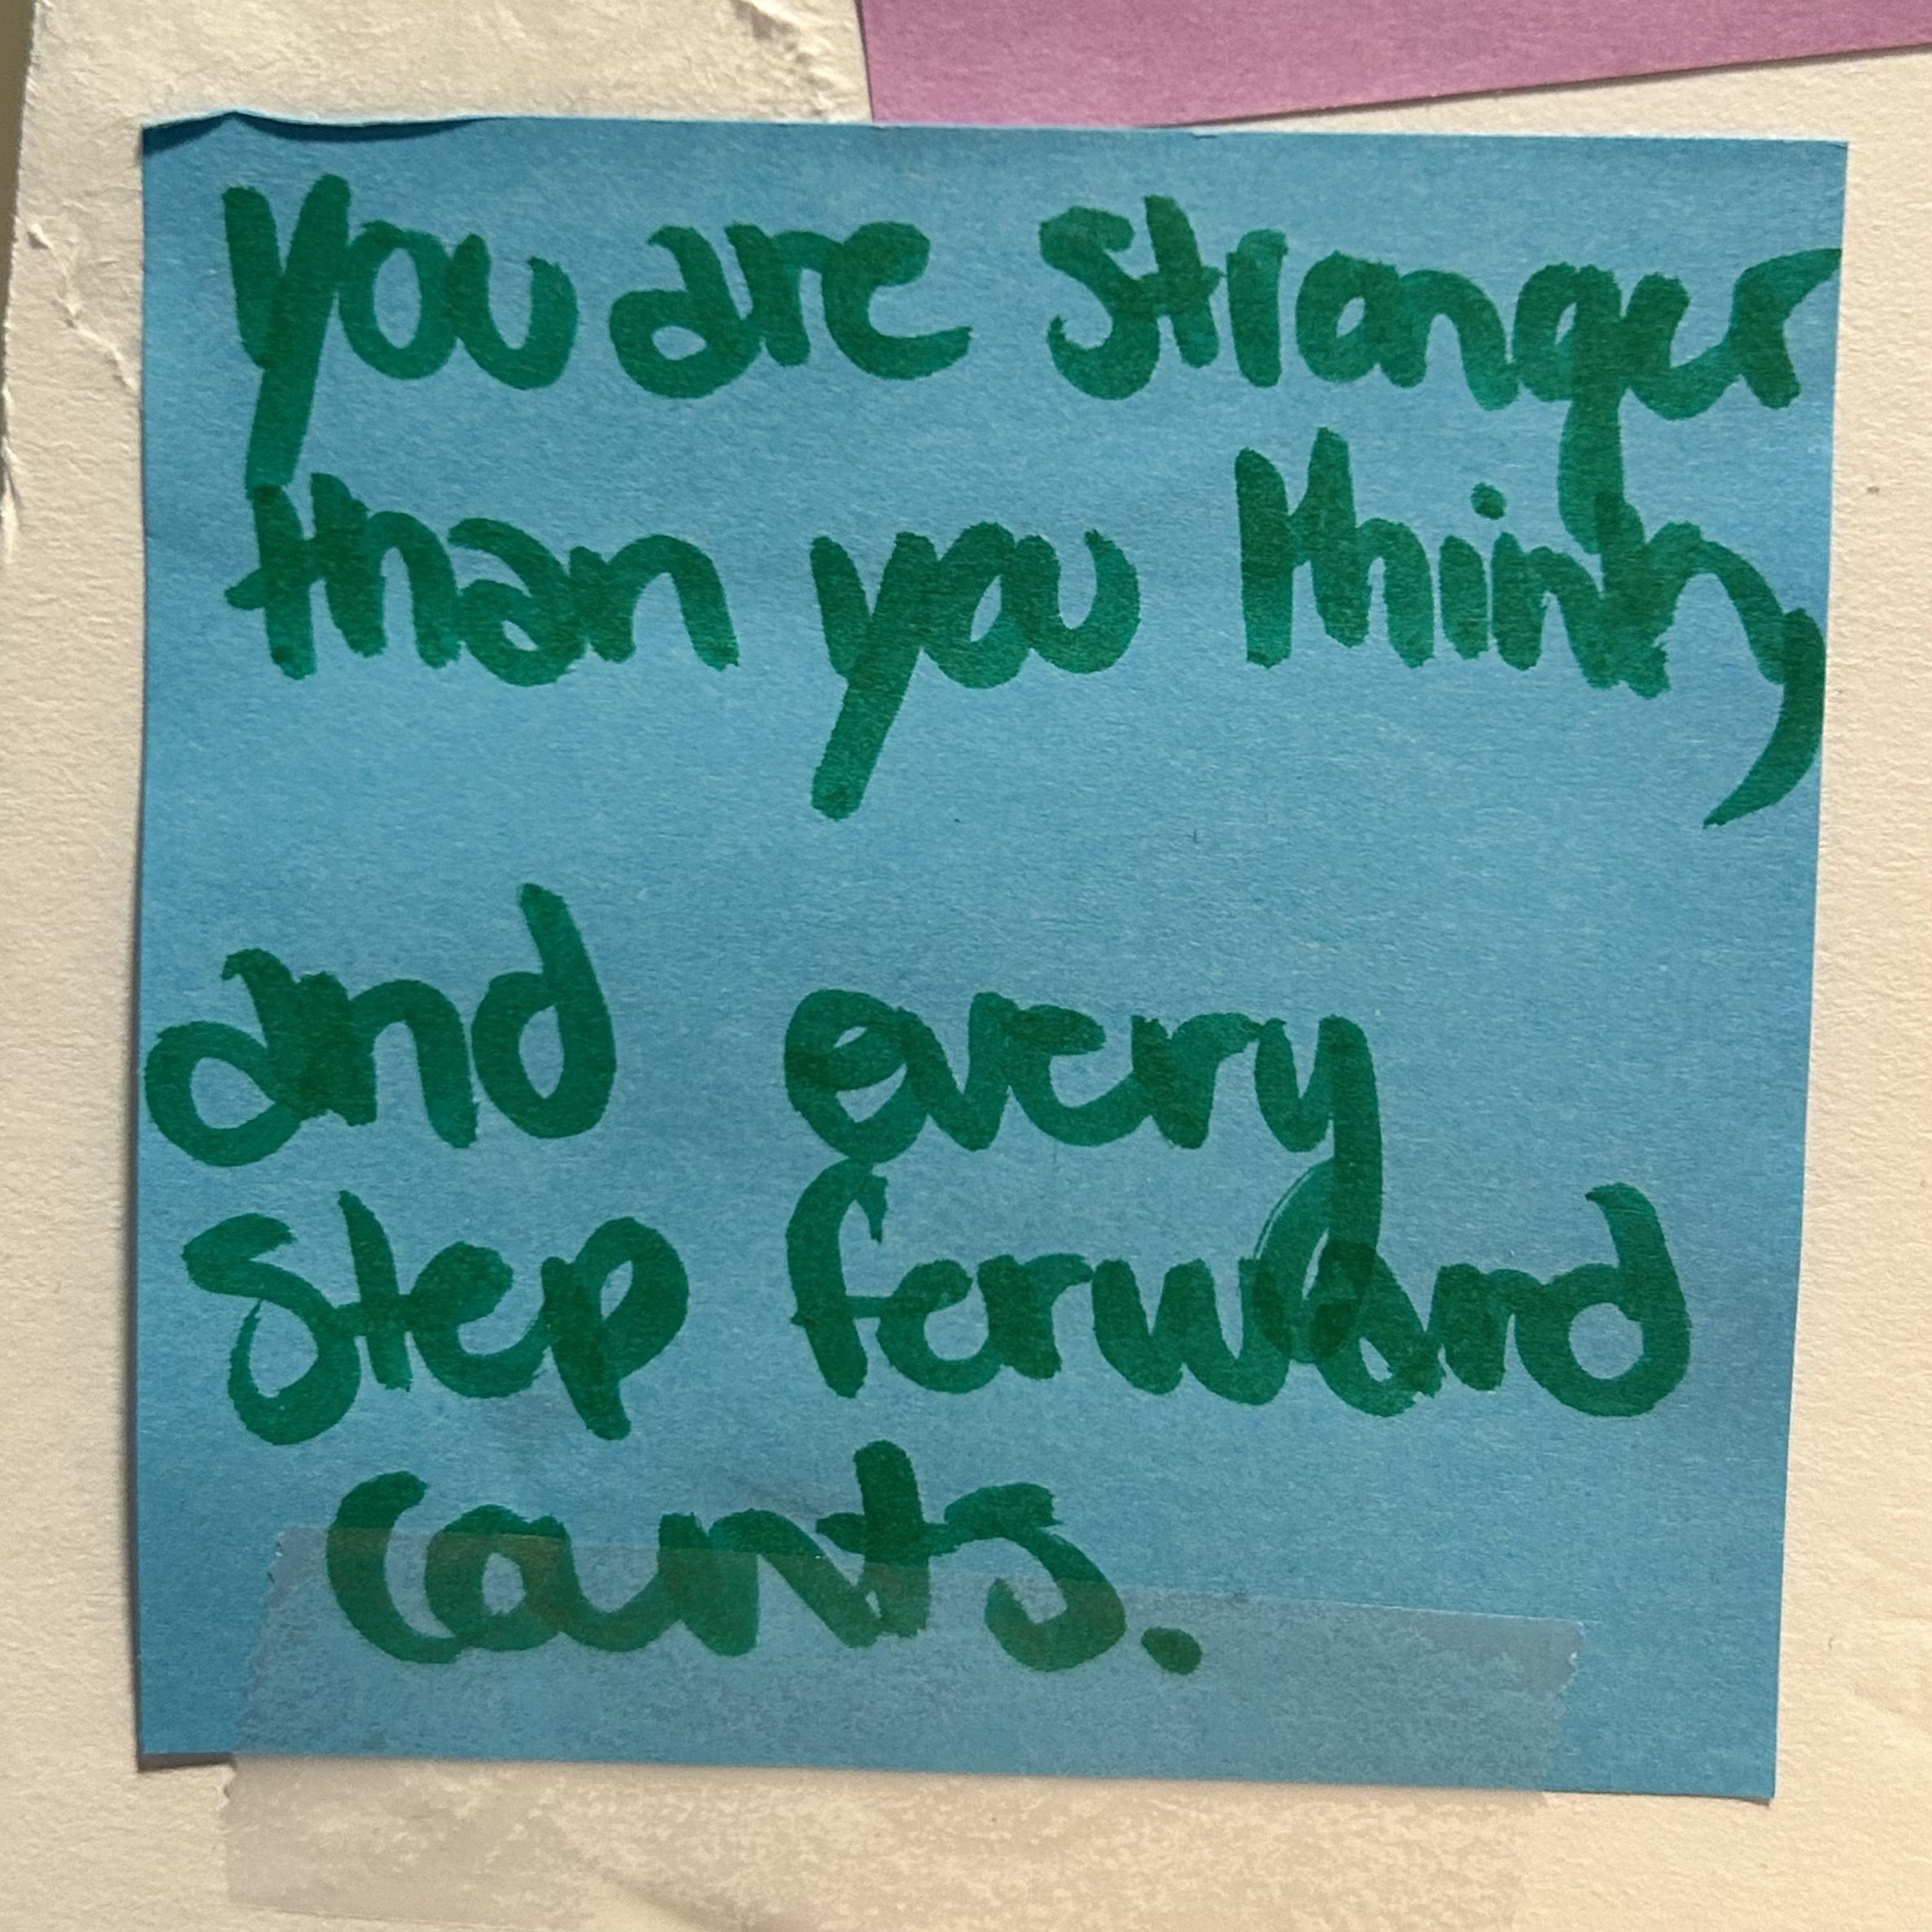 you are stronger
than you think,
and every
step forward
counts.